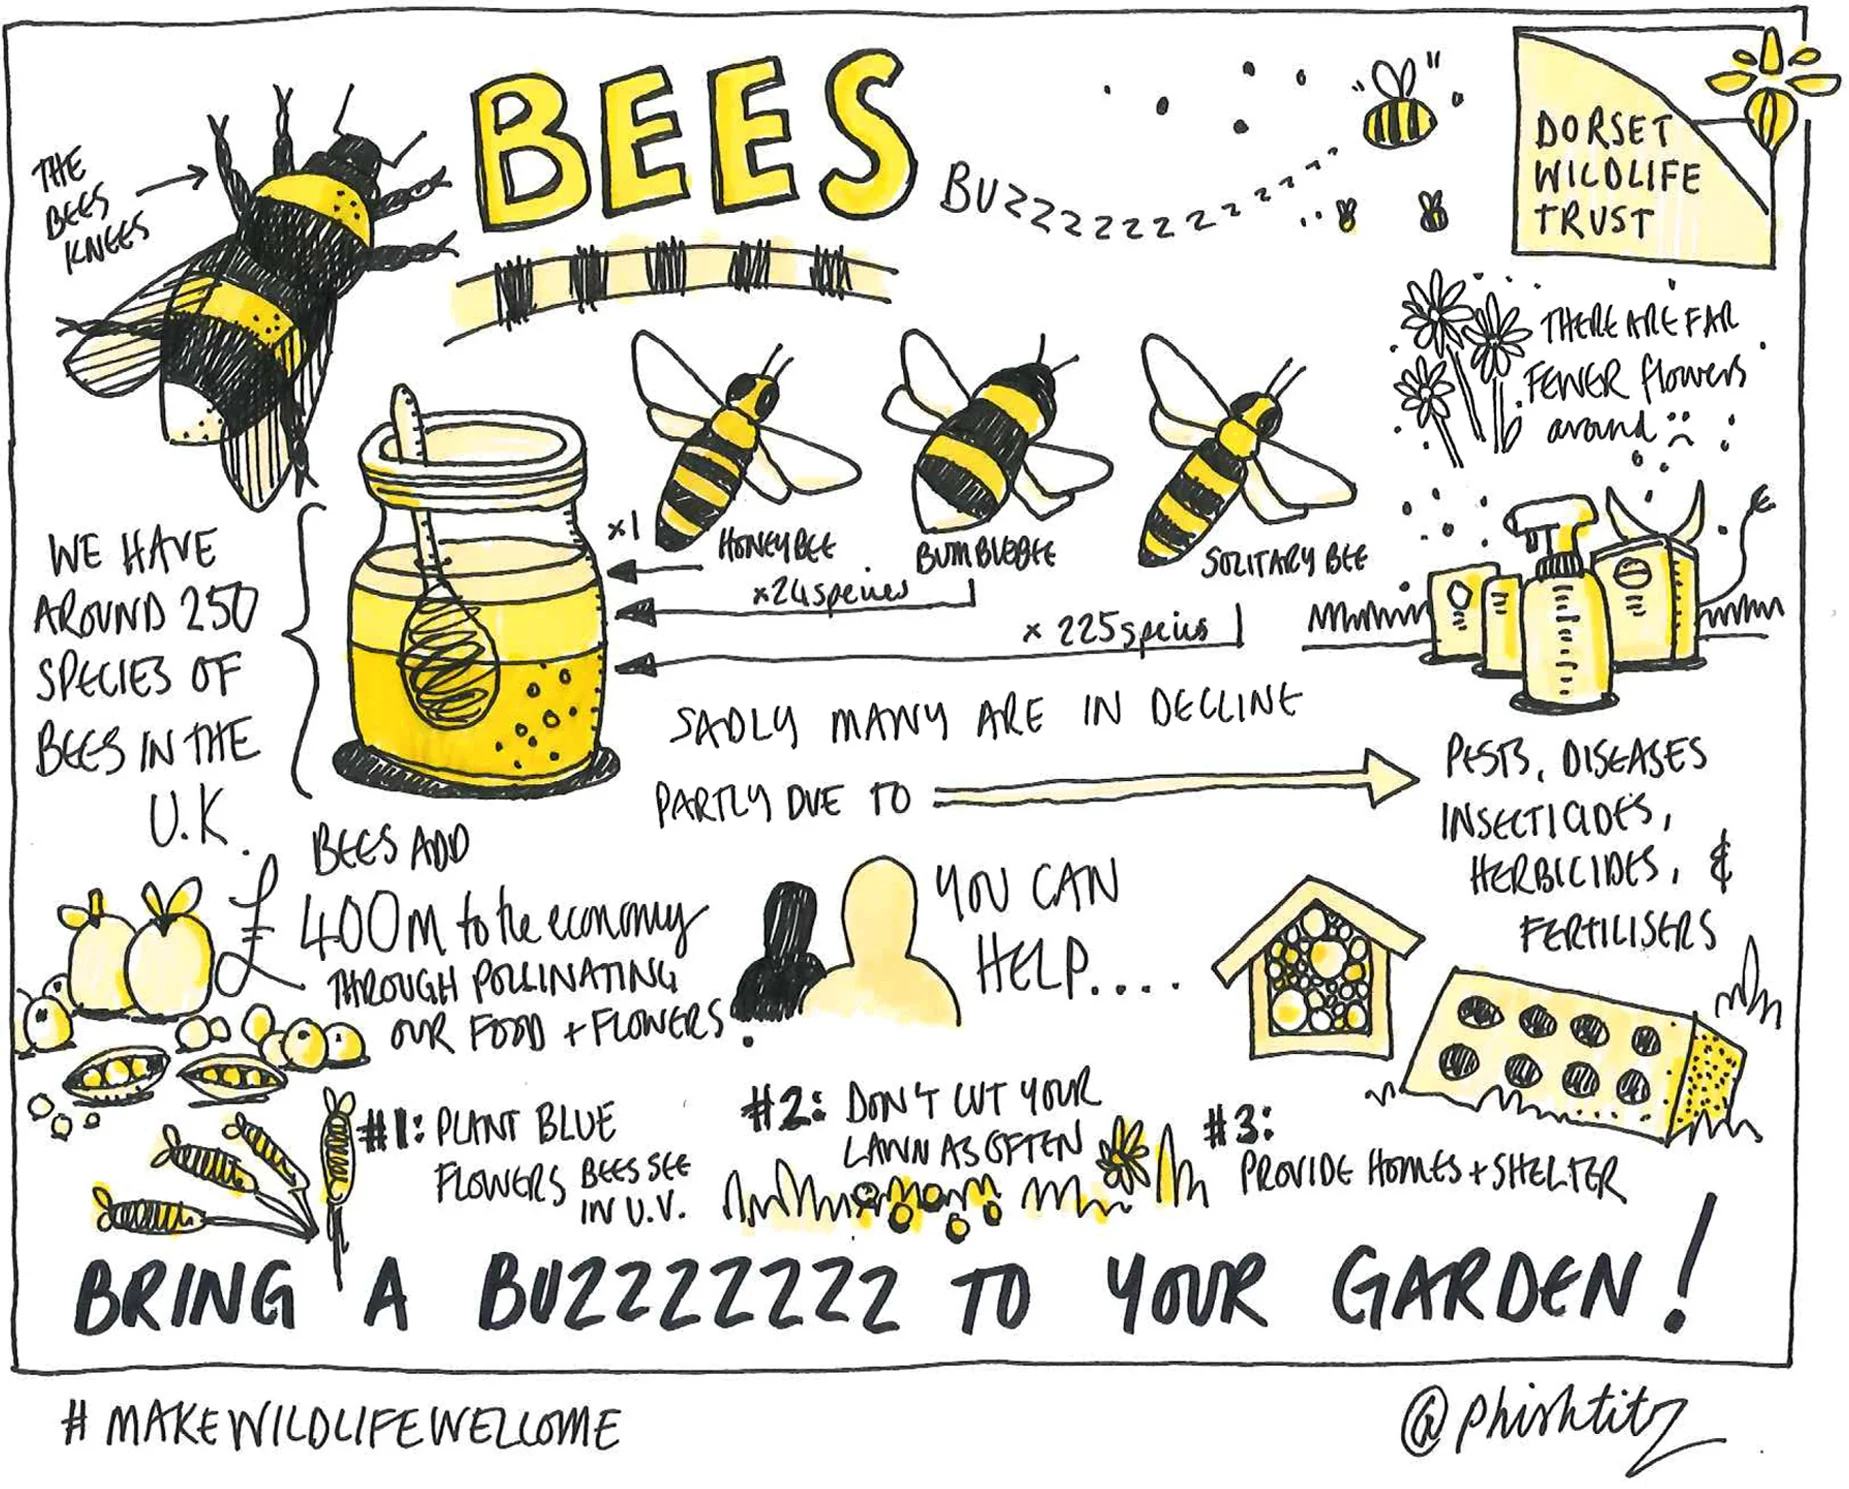 BEES
THE
BEES
KNEES
BUZZZZZZZZZZZZZ
DORSET
WILDLIFE
TRUST
THERE ARE FAR
FEWER flowers
around
x1
HONEYBEE
BUMBLEBEE
SOLITARY BEE
x24 species
x 225 species
WE HAVE
AROUND 250
SPECIES OF
BEES IN THE
U.K.
SADLY MANY ARE IN DECLINE
PARTLY DUE TO
PESTS, DISEASES
INSECTICIDES,
HERBICIDES, &
FERTILISERS
BEES ADD
£ 400M to the economy
THROUGH POLLINATING
OUR FOOD + FLOWERS.
YOU CAN
HELP....
#1: PLANT BLUE
FLOWERS BEES SEE
IN U.V.
#2: DON'T CUT YOUR
LAWN AS OFTEN
#3:
PROVIDE HOMES + SHELTER
BRING A BUZZZZZZZ TO YOUR GARDEN!
#MAKEWILDLIFEWELCOME
@phishtitz